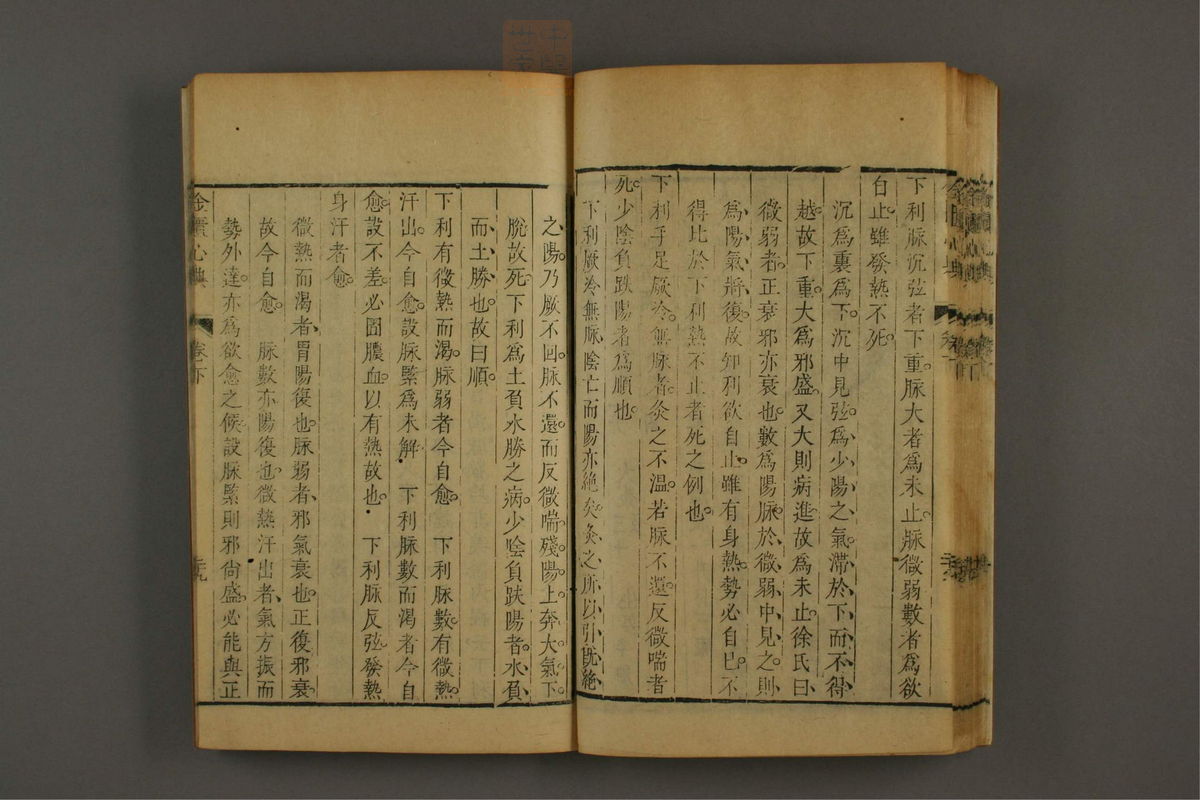 下利脈沉弦者下重。脈大者為未止。脈微弱數者為欲
自止。雖發熱不死。
沉為裏為下。沉中見弦。為少陽之氣滯於下而不得
越。故下重。大為邪盛。又大則病進。故為未止。徐氏曰
微弱者。正衰邪亦衰也。數為陽脈。於微弱中見之。則
為陽氣將復。故知利欲自止。雖有身熱。勢必自已。不
得比於下利熱不止者死之例也。
下利手足厥冷。無脈者。灸之不溫。若脈不還。反微喘者
死。少陰負趺陽者為順也。
下利厥冷無脈。陰亡而陽亦絕矣。灸之所以引既絕
之陽。乃厥不回。脈不還。而反微喘。殘陽上奔。大氣下
脫故死。下利為土負水勝之病。少陰負趺陽者。水負
而土勝也。故曰順。
下利有微熱而渴。脈弱者今自愈。 下利脈數。有微熱。
汗出。今自愈。設脈緊為未解。 下利脈數而渴者今自
愈。設不差。必圊膿血。以有熱故也。 下利脈反弦。發熱
身汗者愈。
微熱而渴者。胃陽復也。脈弱者。邪氣衰也。正復邪衰。
故今自愈。 脈數亦陽復也。微熱汗出者。氣方振而
勢外達。亦為欲愈之候。設脈緊則邪尚盛。必能與正
金匱心典
卷下
三十九